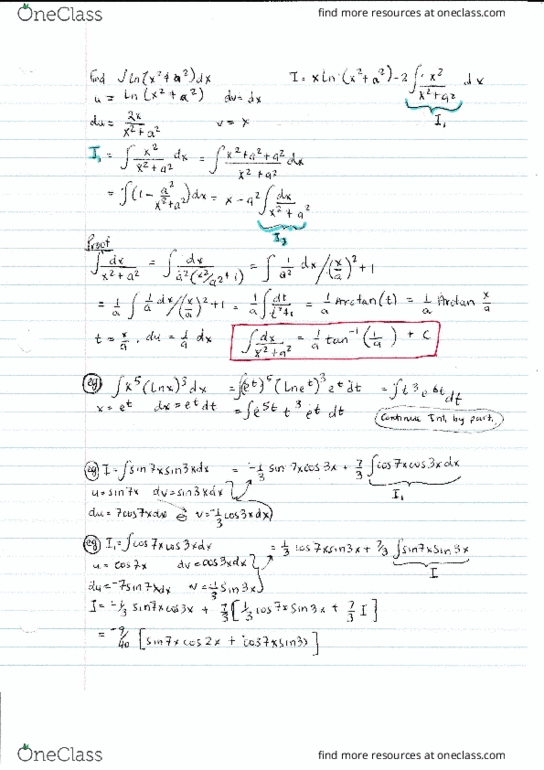 OneClass
find more resources at oneclass.com
find ∫ln(x²+a²)dx
I = xln(x²+a²)-2∫x²/(x²+a²) dx
u = ln(x²+a²) dv=dx
I₁
du = 2x/(x²+a²) v = x
I₁ = ∫x²/(x²+a²) dx = ∫(x²+a²+a²)/(x²+a²) dx
= ∫(1 - a²/(x²+a²))dx = x - a²∫dx/(x²+a²)
Proof
∫dx/(x²+a²) = ∫dx/(a²(x²/a²+1)) = ∫ 1/a² dx/(x/a)²+1
= 1/a ∫ 1/a dx/(x/a)²+1 = 1/a ∫dt/(t²+1) = 1/a Arctan(t) = 1/a Arctan x/a
t = x/a, du = 1/a dx
∫dx/(x²+a²) = 1/a tan⁻¹( ) + C
eg ∫x⁵(lnx)³dx = ∫(eᵗ)⁵(lneᵗ)³eᵗdt = ∫t³e⁶ᵗdt
x = eᵗ dx = eᵗdt = ∫e⁵ᵗ t³ eᵗ dt
Continue Int. by part.
eg I = ∫sin7xsin3xdx = -1/3 sin7xcos3x + 7/3 ∫cos7xcos3xdx
u = sin7x dv = sin3xdx
I₁
du = 7cos7xdx v = -1/3 cos3x
eg I₁ = ∫cos7xcos3xdx = 1/3 cos7xsin3x + 7/3 ∫sin7xsin3x
u = cos7x dv = cos3xdx
I
du = -7sin7xdx v = 1/3 sin3x
I = -1/3 sin7xcos3x + 7/3[1/3 cos7xsin3x + 7/3 I]
= -9/40 [sin7xcos2x + cos7xsin3x]
OneClass
find more resources at oneclass.com